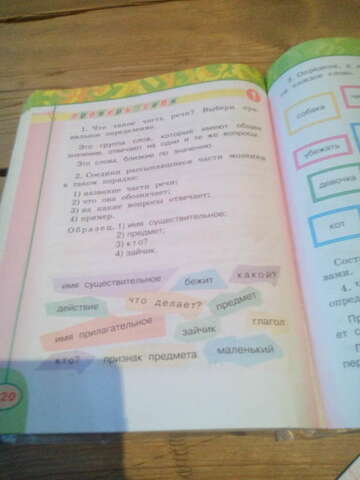 проверь себя
1
1. Что такое часть речи? Выбери пра-
вильное определение.
Это группа слов, которые имеют общее
значение, отвечают на одни и те же вопросы.
Это слова, близкие по значению.
2. Соедини рассыпавшиеся части мозаики
в таком порядке:
1) название части речи;
2) что она обозначает;
3) на какие вопросы отвечает;
4) пример.
Образец. 1) имя существительное;
2) предмет;
3) кто?
4) зайчик.
имя существительное
бежит
какой?
действие
что делает?
предмет
имя прилагательное
зайчик
глагол
кто?
признак предмета
маленький
20
каждое слово.
собака
убежать
девочка
кот
Сост
4.
опреде